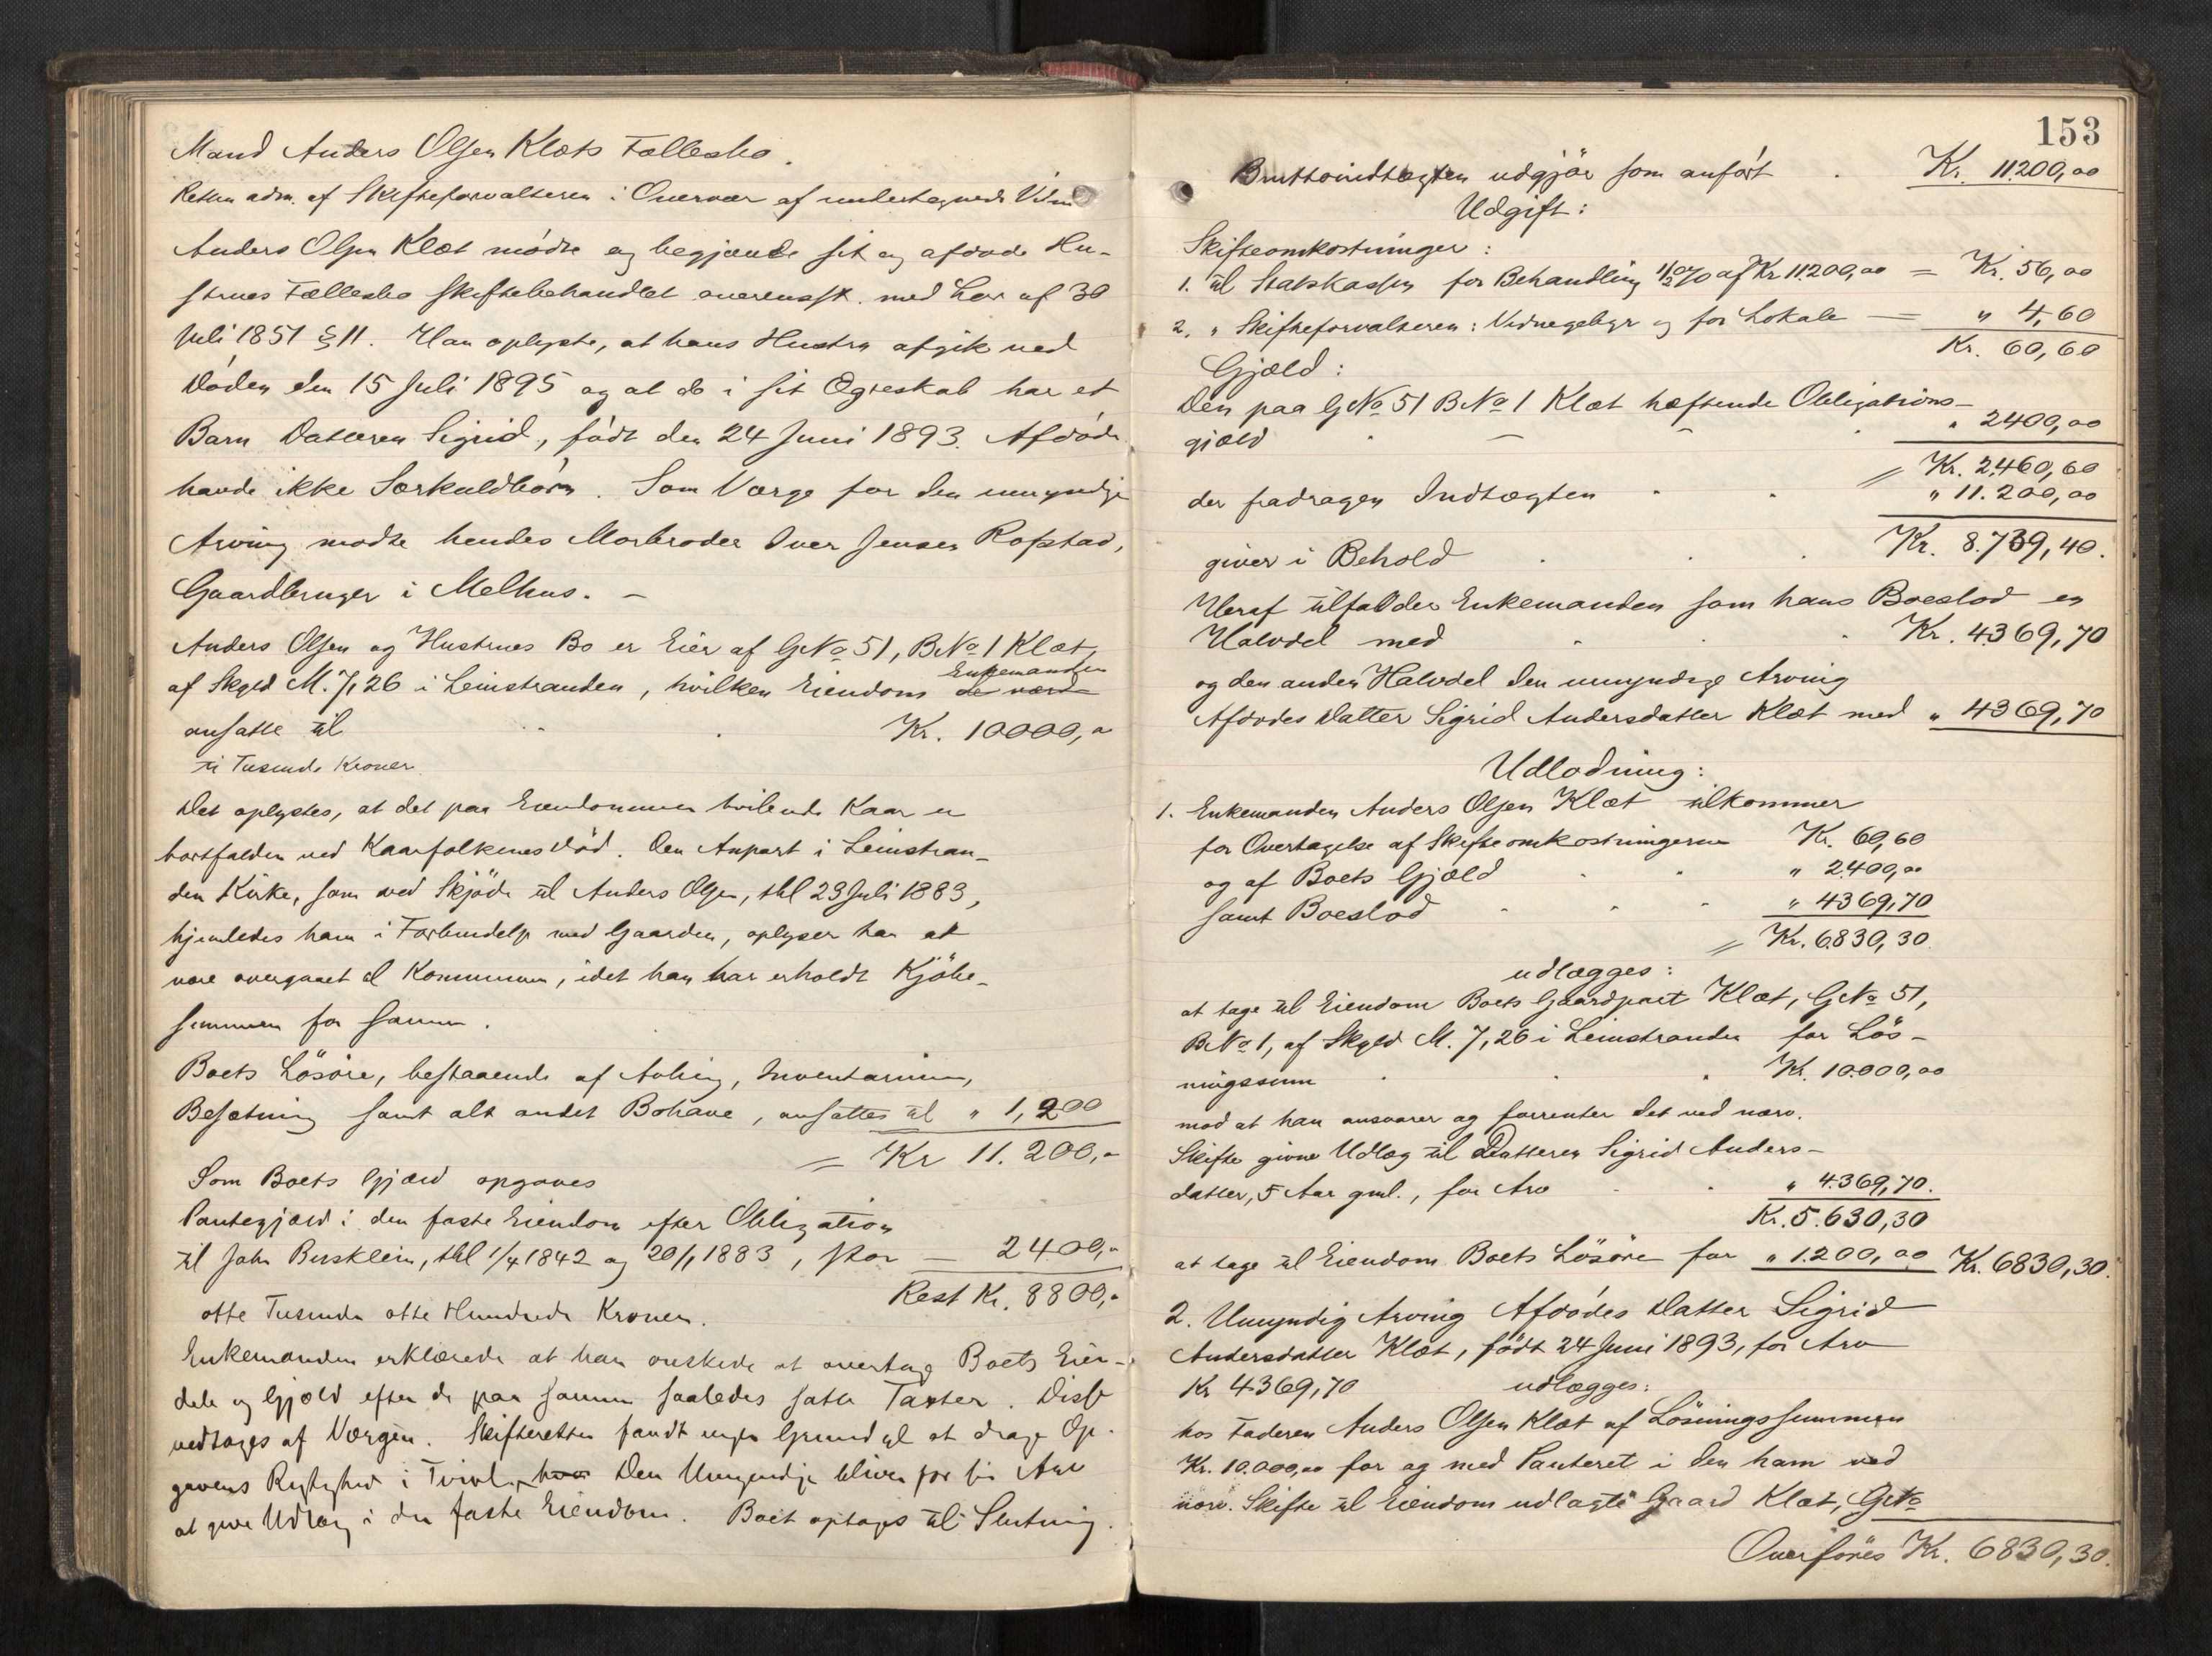 Mand Anders Olsen Klæts Fællesbo.
Retten adm. af Skifteforvalteren i Overvær af undertegnede Vidner
Anders Olsen Klæt mødte og begjærede sit og afdøde Hu-
strues Fællesbo skiftebehandlet overensst. med Lov af 30
Juli 1851 § 11. Han oplyste, at hans Hustru afgik ved
Døden den 15 Juli 1895 og at de i sit Ægteskab har et
Barn Datteren Sigrid, født den 24 Juni 1893. Afdøde
havde ikke Særkuldbørn. Som Værge for den umyndige
Arving mødte hendes Morbroder Iver Jensen Rofstad,
Gaardbruger i Melhus. –
Anders Olsen og Hustrues Bo er Eier af GNo 51, BNo 1 Klæt,
af Skyld M. 7,26 i Leinstranden, hvilken Eiendom Enkemanden
ansatte til Kr. 10000,"
ti Tusinde Kroner.
Det oplystes, at det paa Eiendommen hvilende Kaar er
bortfalden ved Kaarfolkenes Død. Den Anpart i Leinstran-
den Kirke, som ved Skjøde til Anders Olsen, thl 23 Juli 1883,
hjemledes ham i Forbindelse med Gaarden, oplyser han at
være overgaaet til Kommunen, idet han har erholdt Kjøbe-
summen for samme.
Boets Løsøre, bestaaende af Avling, Inventarium,
Besætning samt alt andet Bohave, ansattes til " 1,200
= Kr 11.200,-
Som Boets Gjæld opgaves
Pantegjæld i den faste Eiendom efter Obligation
til John Bersklein, thl 1/4 1842 og 20/1 1883, stor – 2400,"
Rest Kr. 8800,"
otte Tusinde otte Hundrede Kroner.
Enkemanden erklærede at han ønskede at overtage Boets Eien-
dele og Gjæld efter de paa samme saaledes satte Taxter. Disse
vedtoges af Værgen. Skifteretten fandt ingen Grund til at drage Op-
gavens Rigtighed i Tvivl. Den Umyndige bliver for sin Arv
at give Udlæg i den faste Eiendom. Boet optoges til Slutning.
153
Bruttoindtægten udgjør som anført . Kr. 11200,00
Udgift:
Skifteomkostninger:
1. til Statskassen for Behandling 1/2 % af Kr 11.200,00 = Kr. 56,00
2. " Skifteforvalteren: Vidnegebyr og for Lokale — " 4,60
Kr. 60,60
Gjæld:
Den paa GNo 51 BNo 1 Klæt heftende Obligations-
gjæld " 2400,00
= Kr. 2460,60
der fradragen Indtægten " 11.200,00
giver i Behold Kr. 8.739,40.
Heraf tilfalder Enkemanden som hans Boeslod en
Halvdel med Kr. 4369,70
og den anden Halvdel den umyndige Arving
Afdødes Datter Sigrid Andersdatter Klæt med " 4369,70
Udlodning:
1. Enkemanden Anders Olsen Klæt tilkommer
for Overtagelse af Skifteomkostningerne Kr. 60,60
og af Boets Gjæld " 2400,00
samt Boeslod " 4369,70
= Kr. 6830,30.
udlægges:
at tage til Eiendom Boets Gaardpart Klæt, GNo 51,
BNo 1, af Skyld M. 7,26 i Leinstranden for Løs-
ningssum Kr. 10.000,00
mod at han ansvarer og forrenter det ved nærv.
Skifte givne Udlæg til Datteren Sigrid Anders-
datter, 5 Aar gml., for Arv " 4.369,70.
Kr. 5.630,30
at tage til Eiendom Boets Løsøre for " 1.200,00 Kr. 6830,30.
2. Umyndig Arving Afdødes Datter Sigrid
Andersdatter Klæt, født 24 Juni 1893, for Arv
Kr 4369,70 udlægges:
hos Faderen Anders Olsen Klæt af Løsningssummen
Kr. 10.000,00 for og med Panteret i den ham ved
nærv. Skifte til Eiendom udlagte Gaard Klæt, GNo
Overføres Kr. 6830,30.